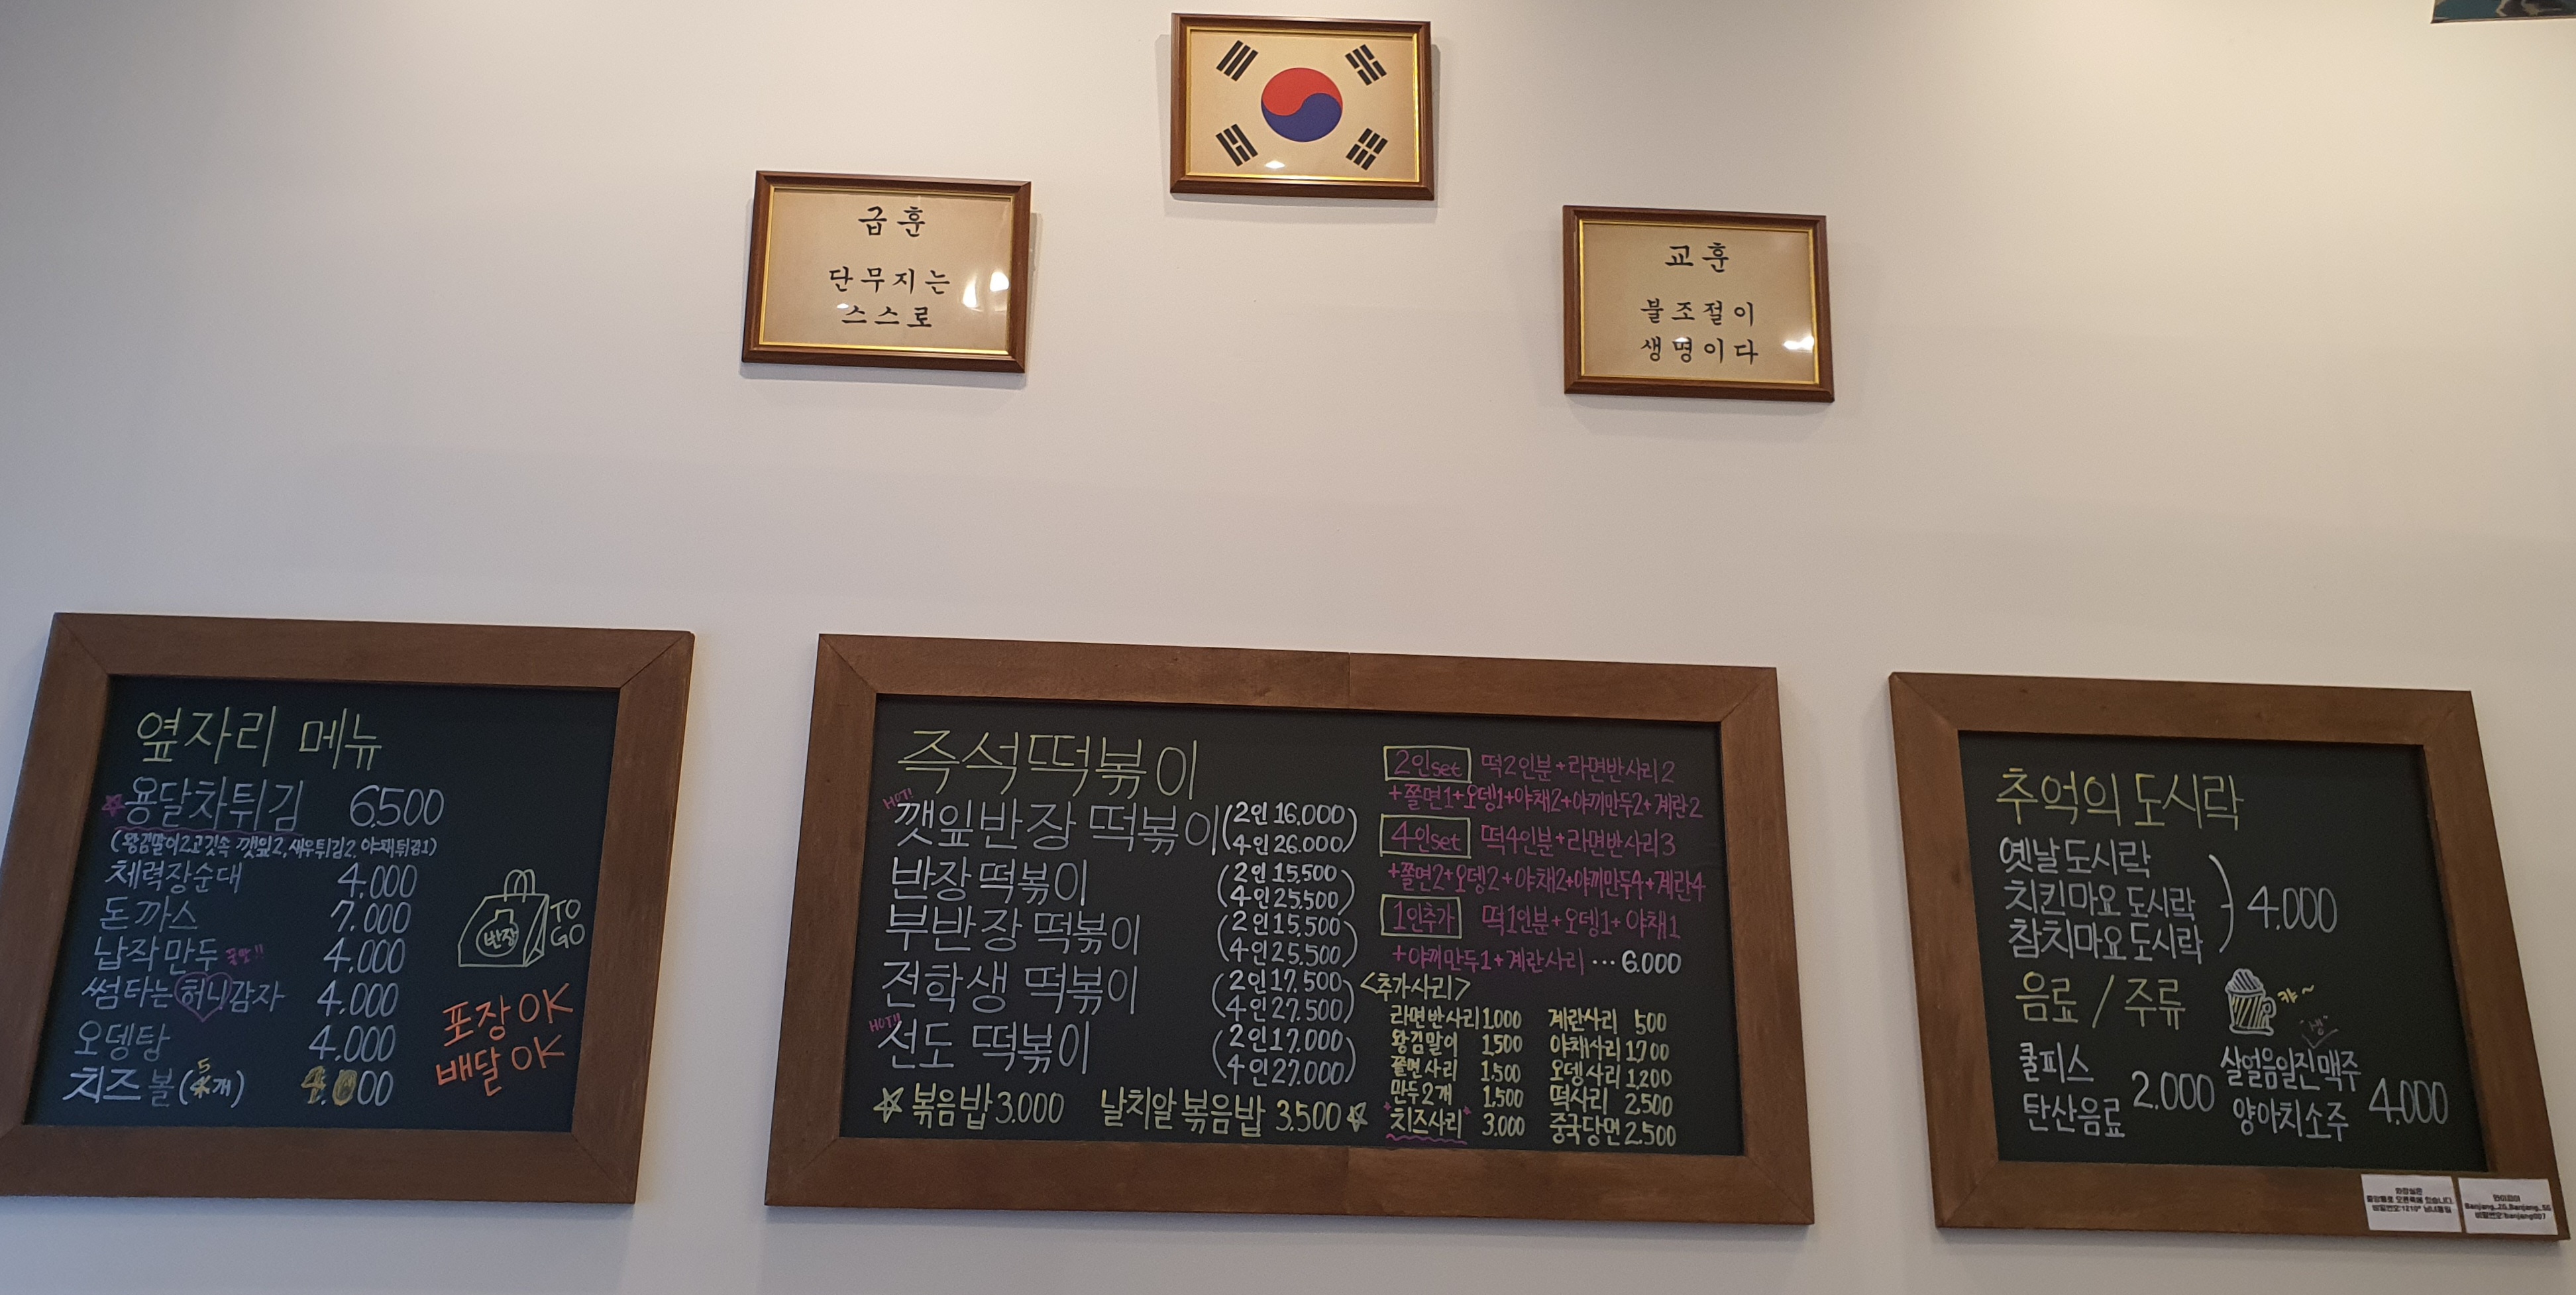 급훈
단무지는
스스로
교훈
불조절이
생명이다
옆자리 메뉴
용달차튀김 6.500
(왕김말이2,고깃속 깻잎2,새우튀김2, 야채튀김1)
체력장순대 4.000
돈까스 7.000
납작만두 4.000
썸타는 허니감자 4.000
오뎅탕 4.000
치즈볼(5개) 4.000
반장
TO
GO
포장 OK
배달 OK
즉석떡볶이
HOT!
깻잎반장 떡볶이 (2인 16.000)
(4인 26.000)
반장 떡볶이 (2인 15.500
4인 25.500)
부반장 떡볶이 (2인 15.500
4인 25.500)
전학생 떡볶이 (2인 17.500
4인 27.500)
HOT!!
선도 떡볶이 (2인 17.000
4인 27.000)
☆볶음밥 3.000 날치알 볶음밥 3.500☆
2인set 떡2인분+라면반사리2
+쫄면1+오뎅1+야채2+야끼만두2+계란2
4인set 떡4인분+라면반사리3
+쫄면2+오뎅2+야채2+야끼만두4+계란4
1인추가 떡1인분+오뎅1+야채1
+야끼만두1+계란사리 ··· 6.000
<추가사리>
라면반사리 1.000 계란사리 500
왕김말이 1.500 야채사리 1.700
쫄면사리 1.500 오뎅사리 1.200
만두2개 1.500 떡사리 2.500
치즈사리 3.000 중국당면 2.500
추억의 도시락
옛날도시락
치킨마요 도시락
참치마요도시락
4.000
음료 / 주류
캬~
쿨피스
탄산음료
2.000
생
살얼음일진맥주
양아치소주
4.000
화장실은
중앙통로 오른쪽에 있습니다.
비밀번호:1210* 남녀동일
와이파이
Banjang_2G,Banjang_5G
비밀번호:banjang007